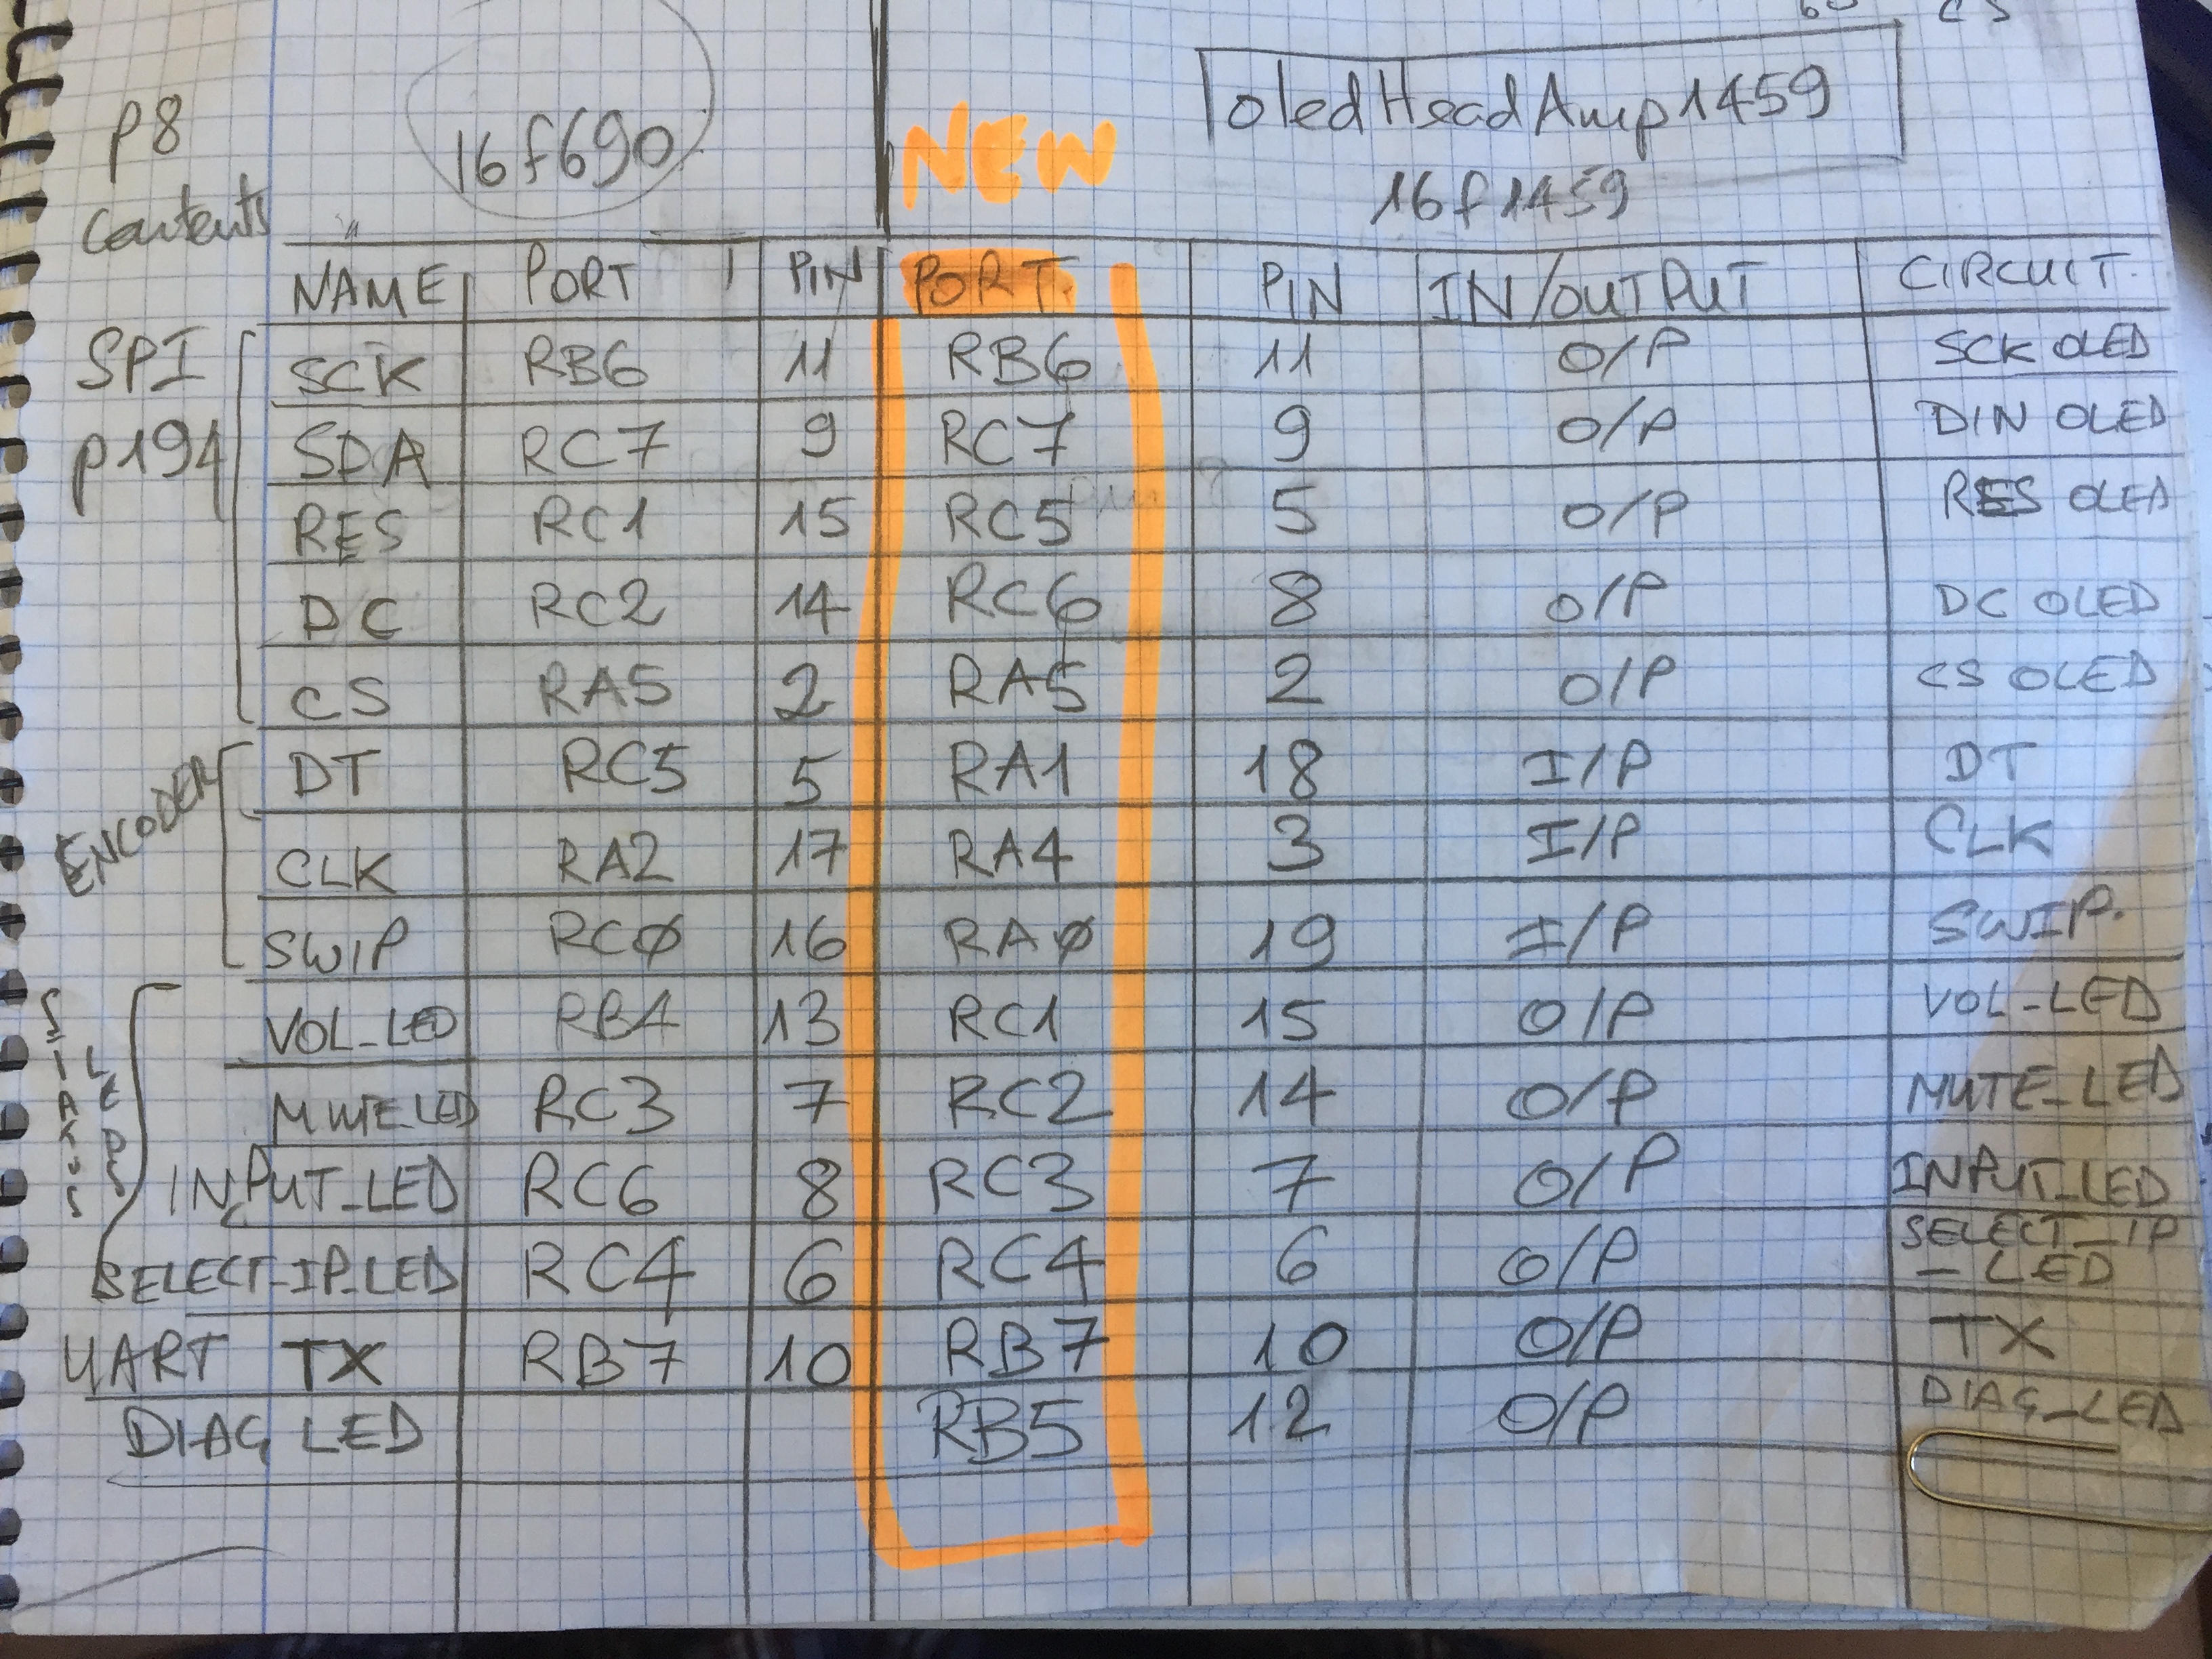 P8
contents
16f690
NEW
oled Head Amp 1459
16f1459
NAME PORT PIN PORT. PIN IN/OUTPUT CIRCUIT.
SPI SCK RB6 11 RB6 11 O/P SCK OLED
p194 SDA RC7 9 RC7 9 O/P DIN OLED
RES RC1 15 RC5 5 O/P RES OLED
DC RC2 14 RC6 8 O/P DC OLED
CS RA5 2 RA5 2 O/P CS OLED
ENCODER DT RC5 5 RA1 18 I/P DT
CLK RA2 17 RA4 3 I/P CLK
SWIP RC0 16 RA0 19 I/P SWIP.
VOL_LED RB4 13 RC1 15 O/P VOL-LED
MUTELED RC3 7 RC2 14 O/P MUTE_LED
INPUT_LED RC6 8 RC3 7 O/P INPUT_LED
SELECT-IP-LED RC4 6 RC4 6 O/P SELECT_IP
_LED
UART TX RB7 10 RB7 10 O/P TX
DIAG LED RB5 12 O/P DIAG_LED